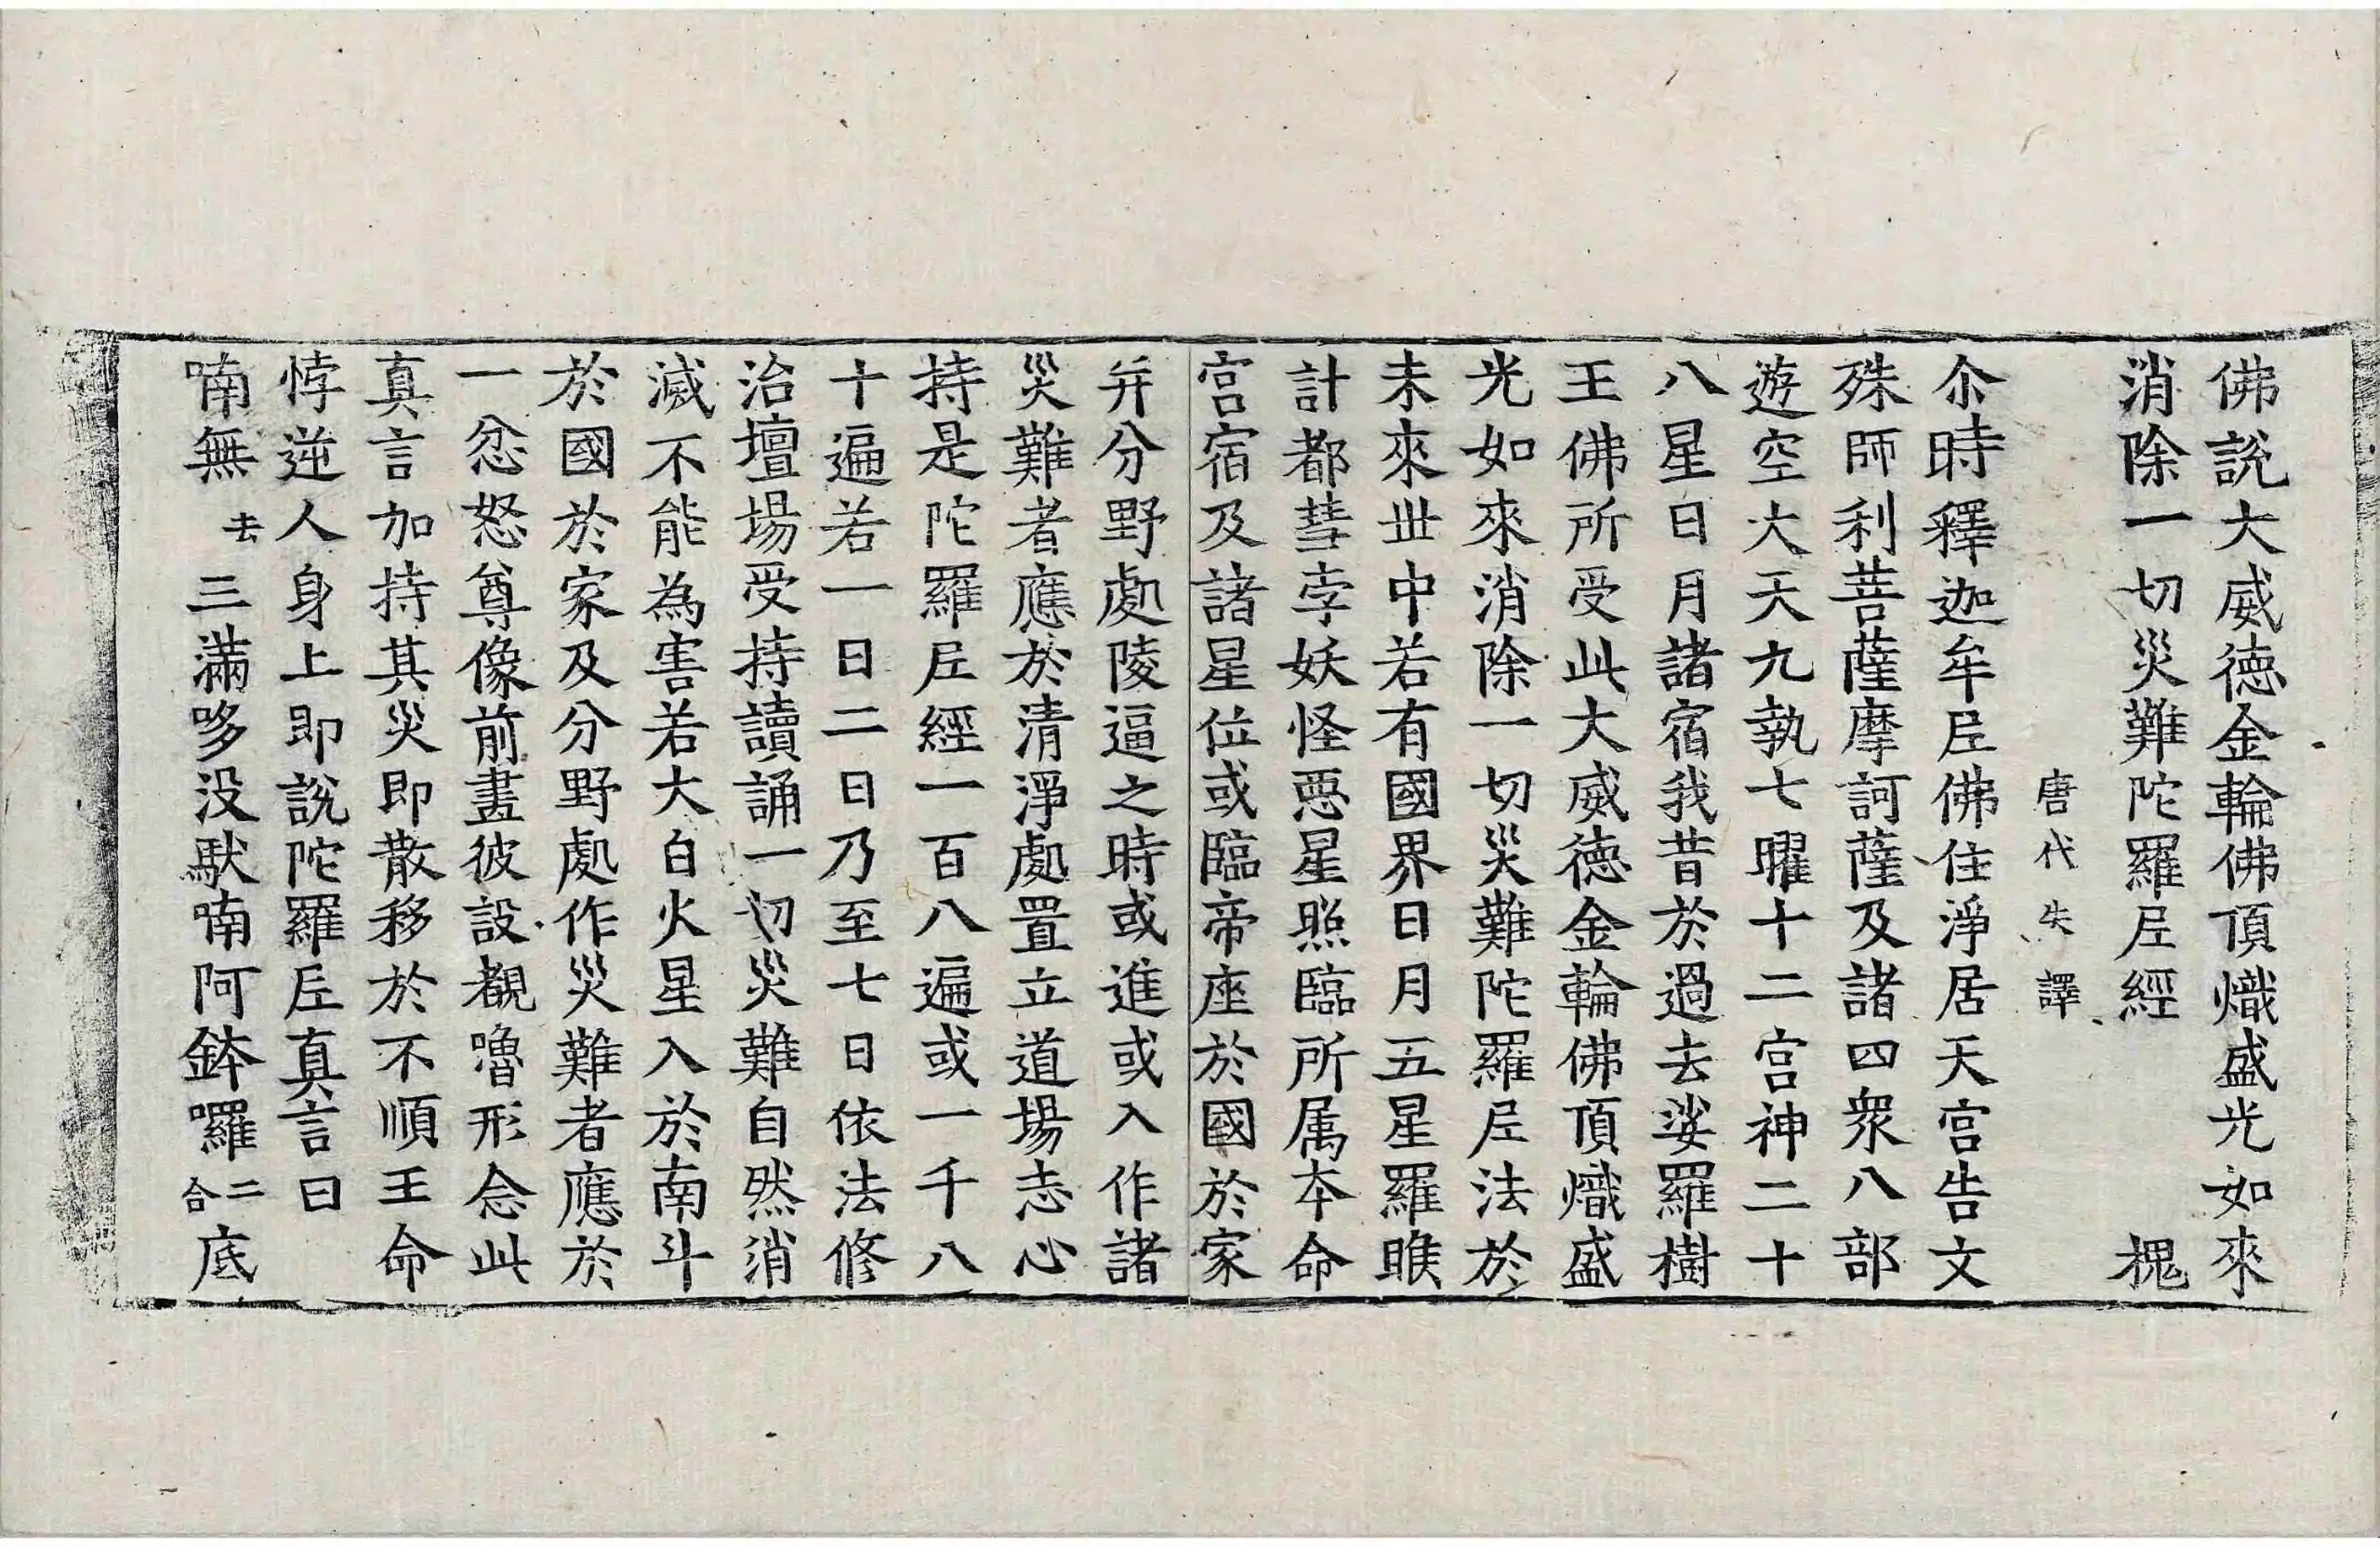 佛說大威德金輪佛頂熾盛光如來
消除一切災難陀羅尼經　槐
唐代失譯
尒時釋迦牟尼佛住淨居天宮告文
殊師利菩薩摩訶薩及諸四衆八部
遊空大天九執七曜十二宮神二十
八星日月諸宿我昔於過去娑羅樹
王佛所受此大威德金輪佛頂熾盛
光如來消除一切災難陀羅尼法於
未來丗中若有國界日月五星羅睺
計都彗孛妖怪惡星照臨所属本命
宮宿及諸星位或臨帝座於國於家
幷分野處陵逼之時或進或入作諸
災難者應於清淨處置立道場志心
持是陀羅尼經一百八遍或一千八
十遍若一日二日乃至七日依法修
治壇場受持讀誦一切災難自然消
滅不能為害若大白火星入於南斗
於國於家及分野處作災難者應於
一忿怒尊像前畫彼設覩嚕形念此
真言加持其災即散移於不順王命
悖逆人身上即說陀羅尼真言曰
喃無去三滿哆没馱喃阿鉢囉二合底